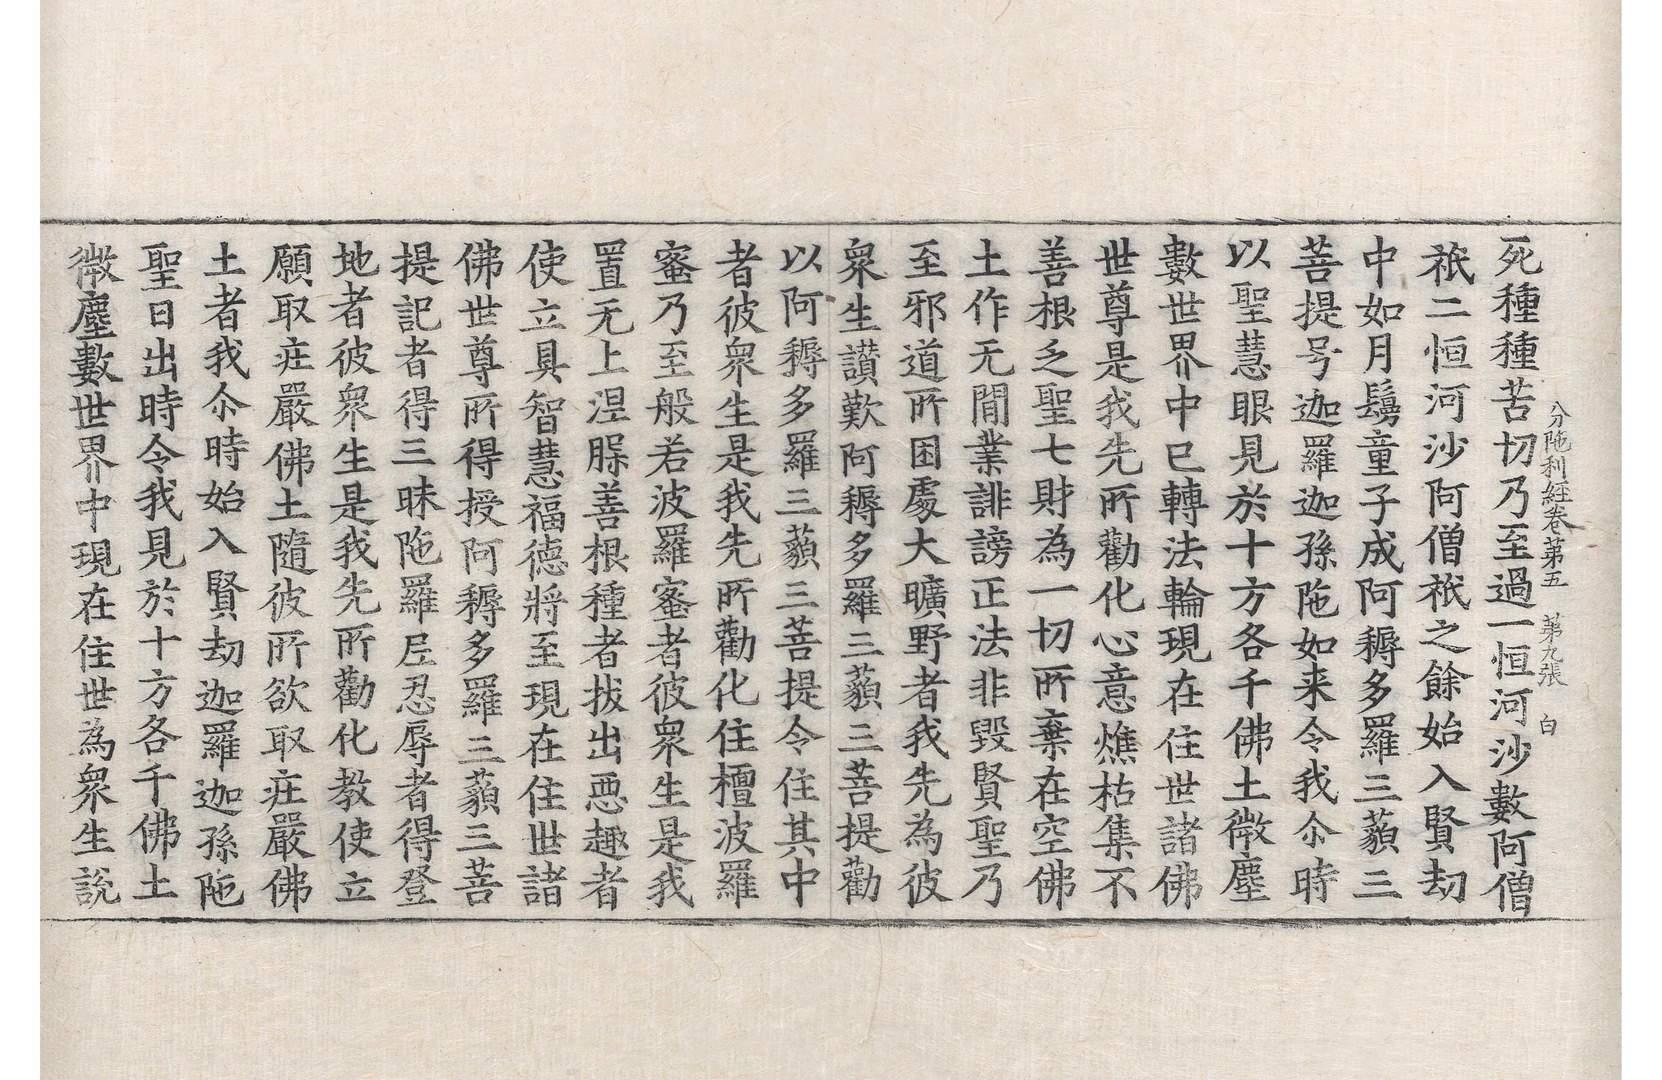 死種種苦切乃至過一恒河沙數阿僧
分陁利經卷第五　第九張　白
祇二恒河沙阿僧祇之餘始入賢劫
中如月鬘童子成阿耨多羅三藐三
菩提号迦羅迦孫陁如来令我尒時
以聖慧眼見於十方各千佛土微塵
數世界中已轉法輪現在住世諸佛
世尊是我先所勸化心意燋枯集不
善根乏聖七財為一切所棄在空佛
土作无閒業誹謗正法非毀賢聖乃
至邪道所困處大曠野者我先為彼
衆生讃歎阿耨多羅三藐三菩提勸
以阿耨多羅三藐三菩提令住其中
者彼衆生是我先所勸化住檀波羅
蜜乃至般若波羅蜜者彼衆生是我
置无上涅槃善根種者拔出惡趣者
使立具智慧福德將至現在住世諸
佛世尊所得授阿耨多羅三藐三菩
提記者得三昧陁羅尼忍辱者得登
地者彼衆生是我先所勸化教使立
願取莊嚴佛土隨彼所欲取莊嚴佛
土者我尒時始入賢劫迦羅迦孫陁
聖日出時令我見於十方各千佛土
微塵數世界中現在住世為衆生說